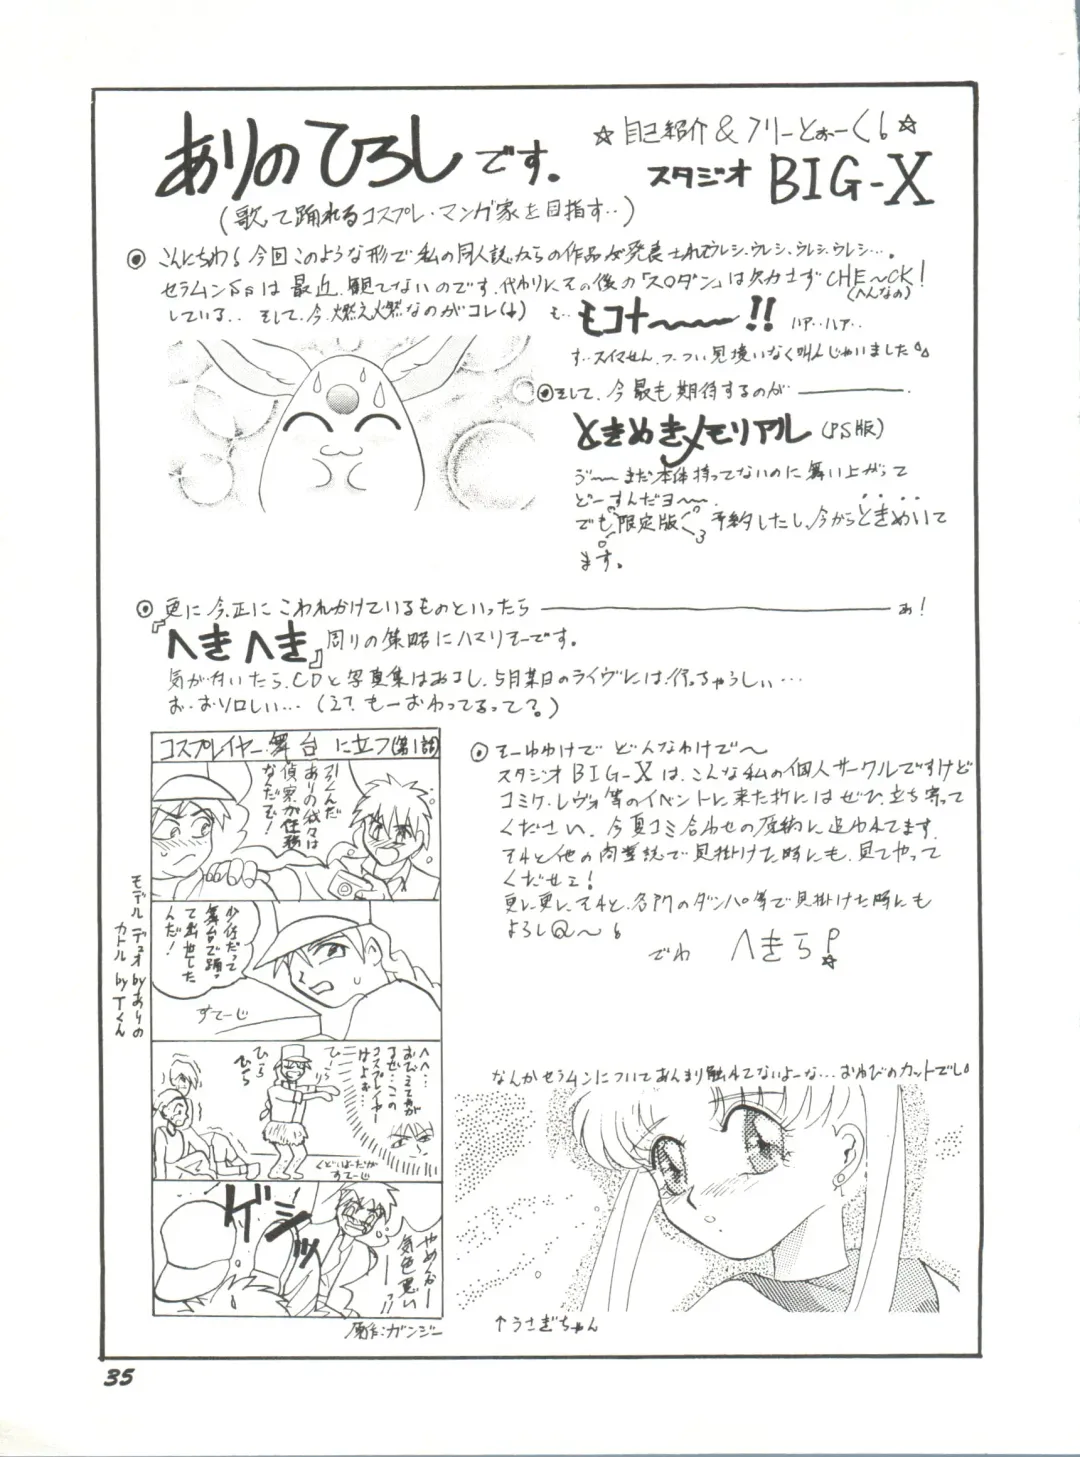 ありのひろしです。
☆自己紹介&フリーとぉーく!☆
スタジオ BIG-X
(歌って踊れるコスプレ・マンガ家を目指す‥)
◎ こんにちわ! 今回このような形で私の同人誌からの作品が発表されてウレシ、ウレシ、ウレシ、ウレシ…。
セラムンSsは最近、観てないのです。代わりにその後の「スロダン」は欠かさずCHE〜CK!
(へんなの)
している.. そして、今、燃え燃えなのがコレ(↓)
も‥モコナ〜〜〜!! ハア‥ハア‥
す‥スイマせん、つ、つい見境いなく叫んじゃいました
◎そして、今最も期待するのが――――.
ときめきメモリアル(PS版)
う〜〜まだ本体持ってないのに舞い上がって
どーすんだヨ〜〜
でも限定版 予約したし、今からときめいて
ます。
◎ 更に今、正にこわれかけているものといったら――――ぁ!
『へきへき』周りの策略にハマりそーです。
気が付いたら、CDと写真集はあるし、5月某日のライヴには、行っちゃうしぃ…
お‥おソロしい…(え?もーおわってるって?)
コスプレイヤー、舞台に立つ(第1話)
ありの我々は
偵察が任務
なんだぞ!
少佐だって
舞台で踊っ
て出世した
んだ!
すてーじ
モデル デュオ by ありの
カトル by Tくん
へへ…
おびえてやが
るぜ…この
コスプレイヤー
はよぉ…
ひらひら
ひらひら
くどいよーだが
すてーじ
ゲシッ
やめろー
気色悪い
ーっ!!
原作:ガンジー
◎ そーゆわけで どんなわけで〜
スタジオBIG-Xは、こんな私の個人サークルですけど
コミケ、レヴォ等のイベントに来た折にはぜひ、立ち寄って
ください。今夏コミ合わせの原稿に追われてます。
それと他の商業誌で見掛けた時にも、見てやって
くだせェ!
更に更に、それと、各所のダンパ等で見掛けた時にも
よろしQ〜!
でわ へきら!
なんかセラムンについてあんまり触れてないよーな…おわびのカットでし。
↑うさぎちゃん
35